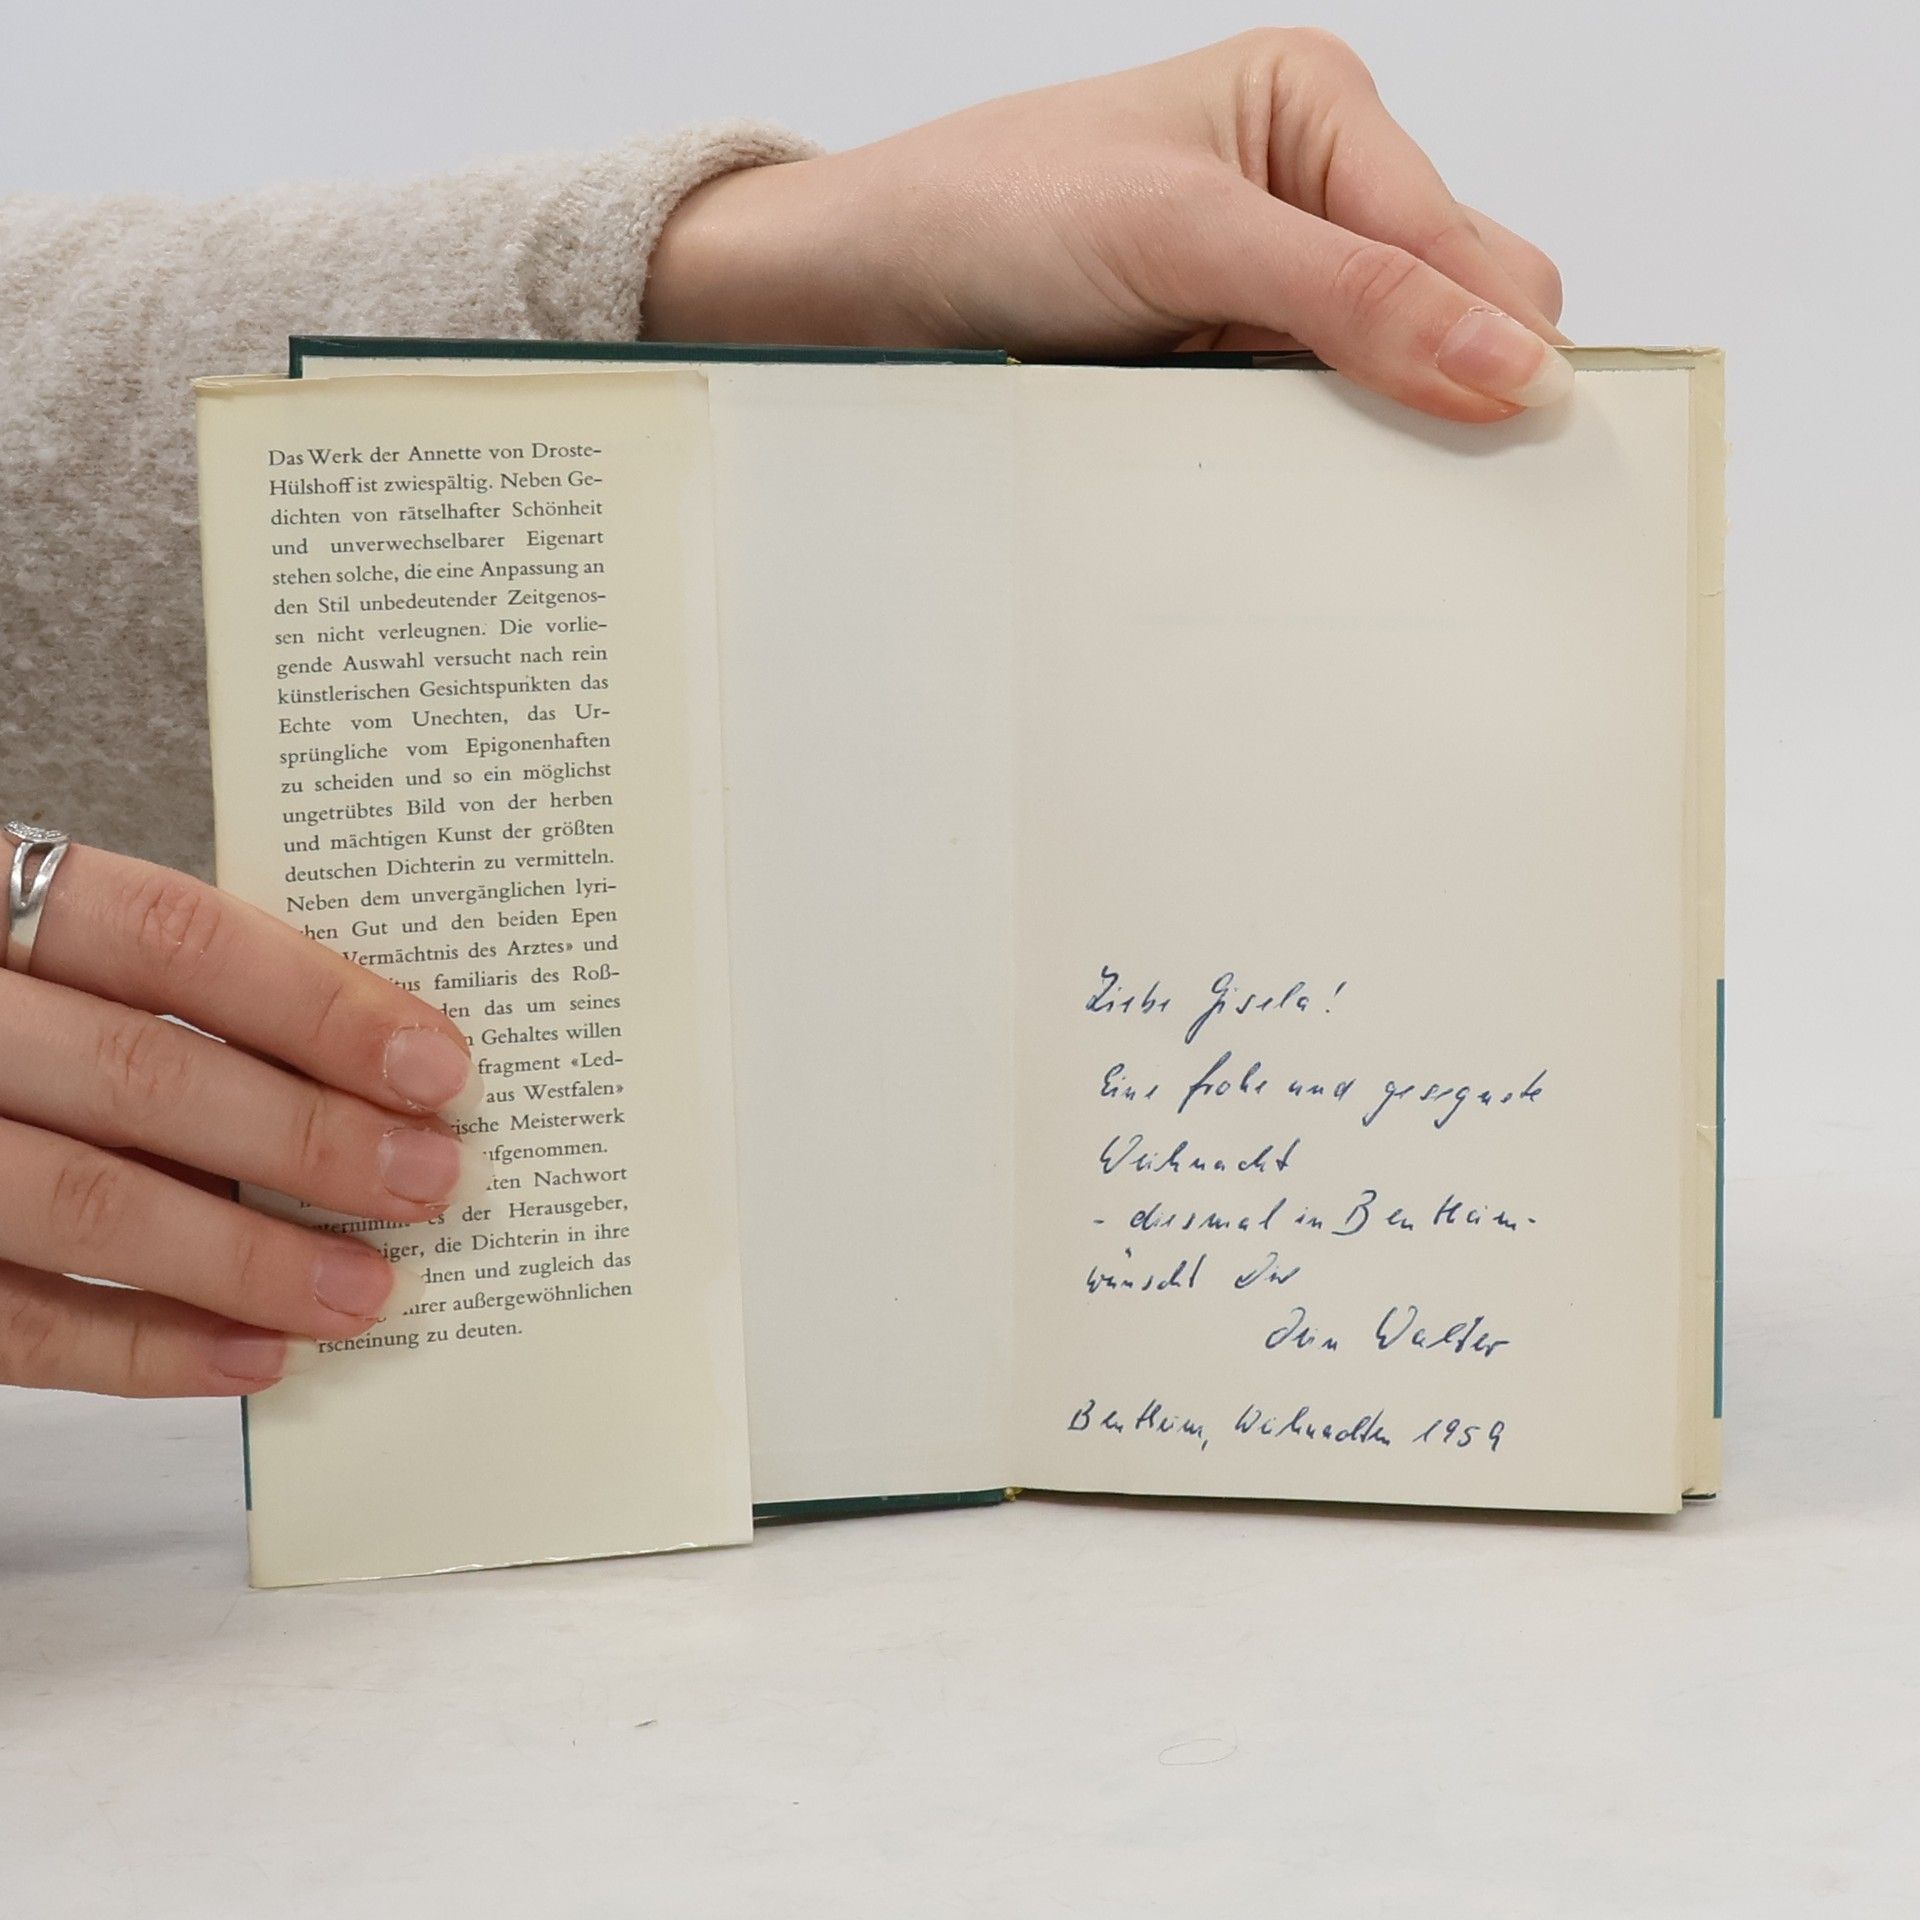 Das Werk der Annette von Droste-
Hülshoff ist zwiespältig. Neben Ge-
dichten von rätselhafter Schönheit
und unverwechselbarer Eigenart
stehen solche, die eine Anpassung an
den Stil unbedeutender Zeitgenos-
sen nicht verleugnen. Die vorlie-
gende Auswahl versucht nach rein
künstlerischen Gesichtspunkten das
Echte vom Unechten, das Ur-
sprüngliche vom Epigonenhaften
zu scheiden und so ein möglichst
ungetrübtes Bild von der herben
und mächtigen Kunst der größten
deutschen Dichterin zu vermitteln.
Neben dem unvergänglichen lyri-
chen Gut und den beiden Epen
Vermächtnis des Arztes» und
tus familiaris des Roß-
den das um seines
n Gehaltes willen
fragment «Led-
aus Westfalen»
ische Meisterwerk
ufgenommen.
ten Nachwort
es der Herausgeber,
iger, die Dichterin in ihre
dnen und zugleich das
ihrer außergewöhnlichen
rscheinung zu deuten.
Liebe Gisela!
Eine frohe und gesegnete
Weihnacht
- diesmal in Bentheim-
wünscht Dir
Dein Walter
Bentheim, Weihnachten 1959